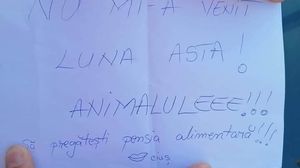 NU MI-A VENIT
LUNA ASTA!
ANIMALULEEE!!!
Să pregătești pensia alimentară!!!